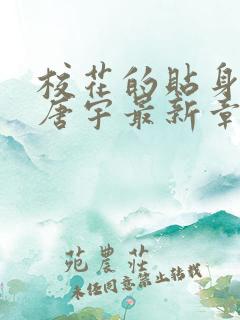 校花的贴身
唐宇最新章
苑農莊
未经同意禁止转载